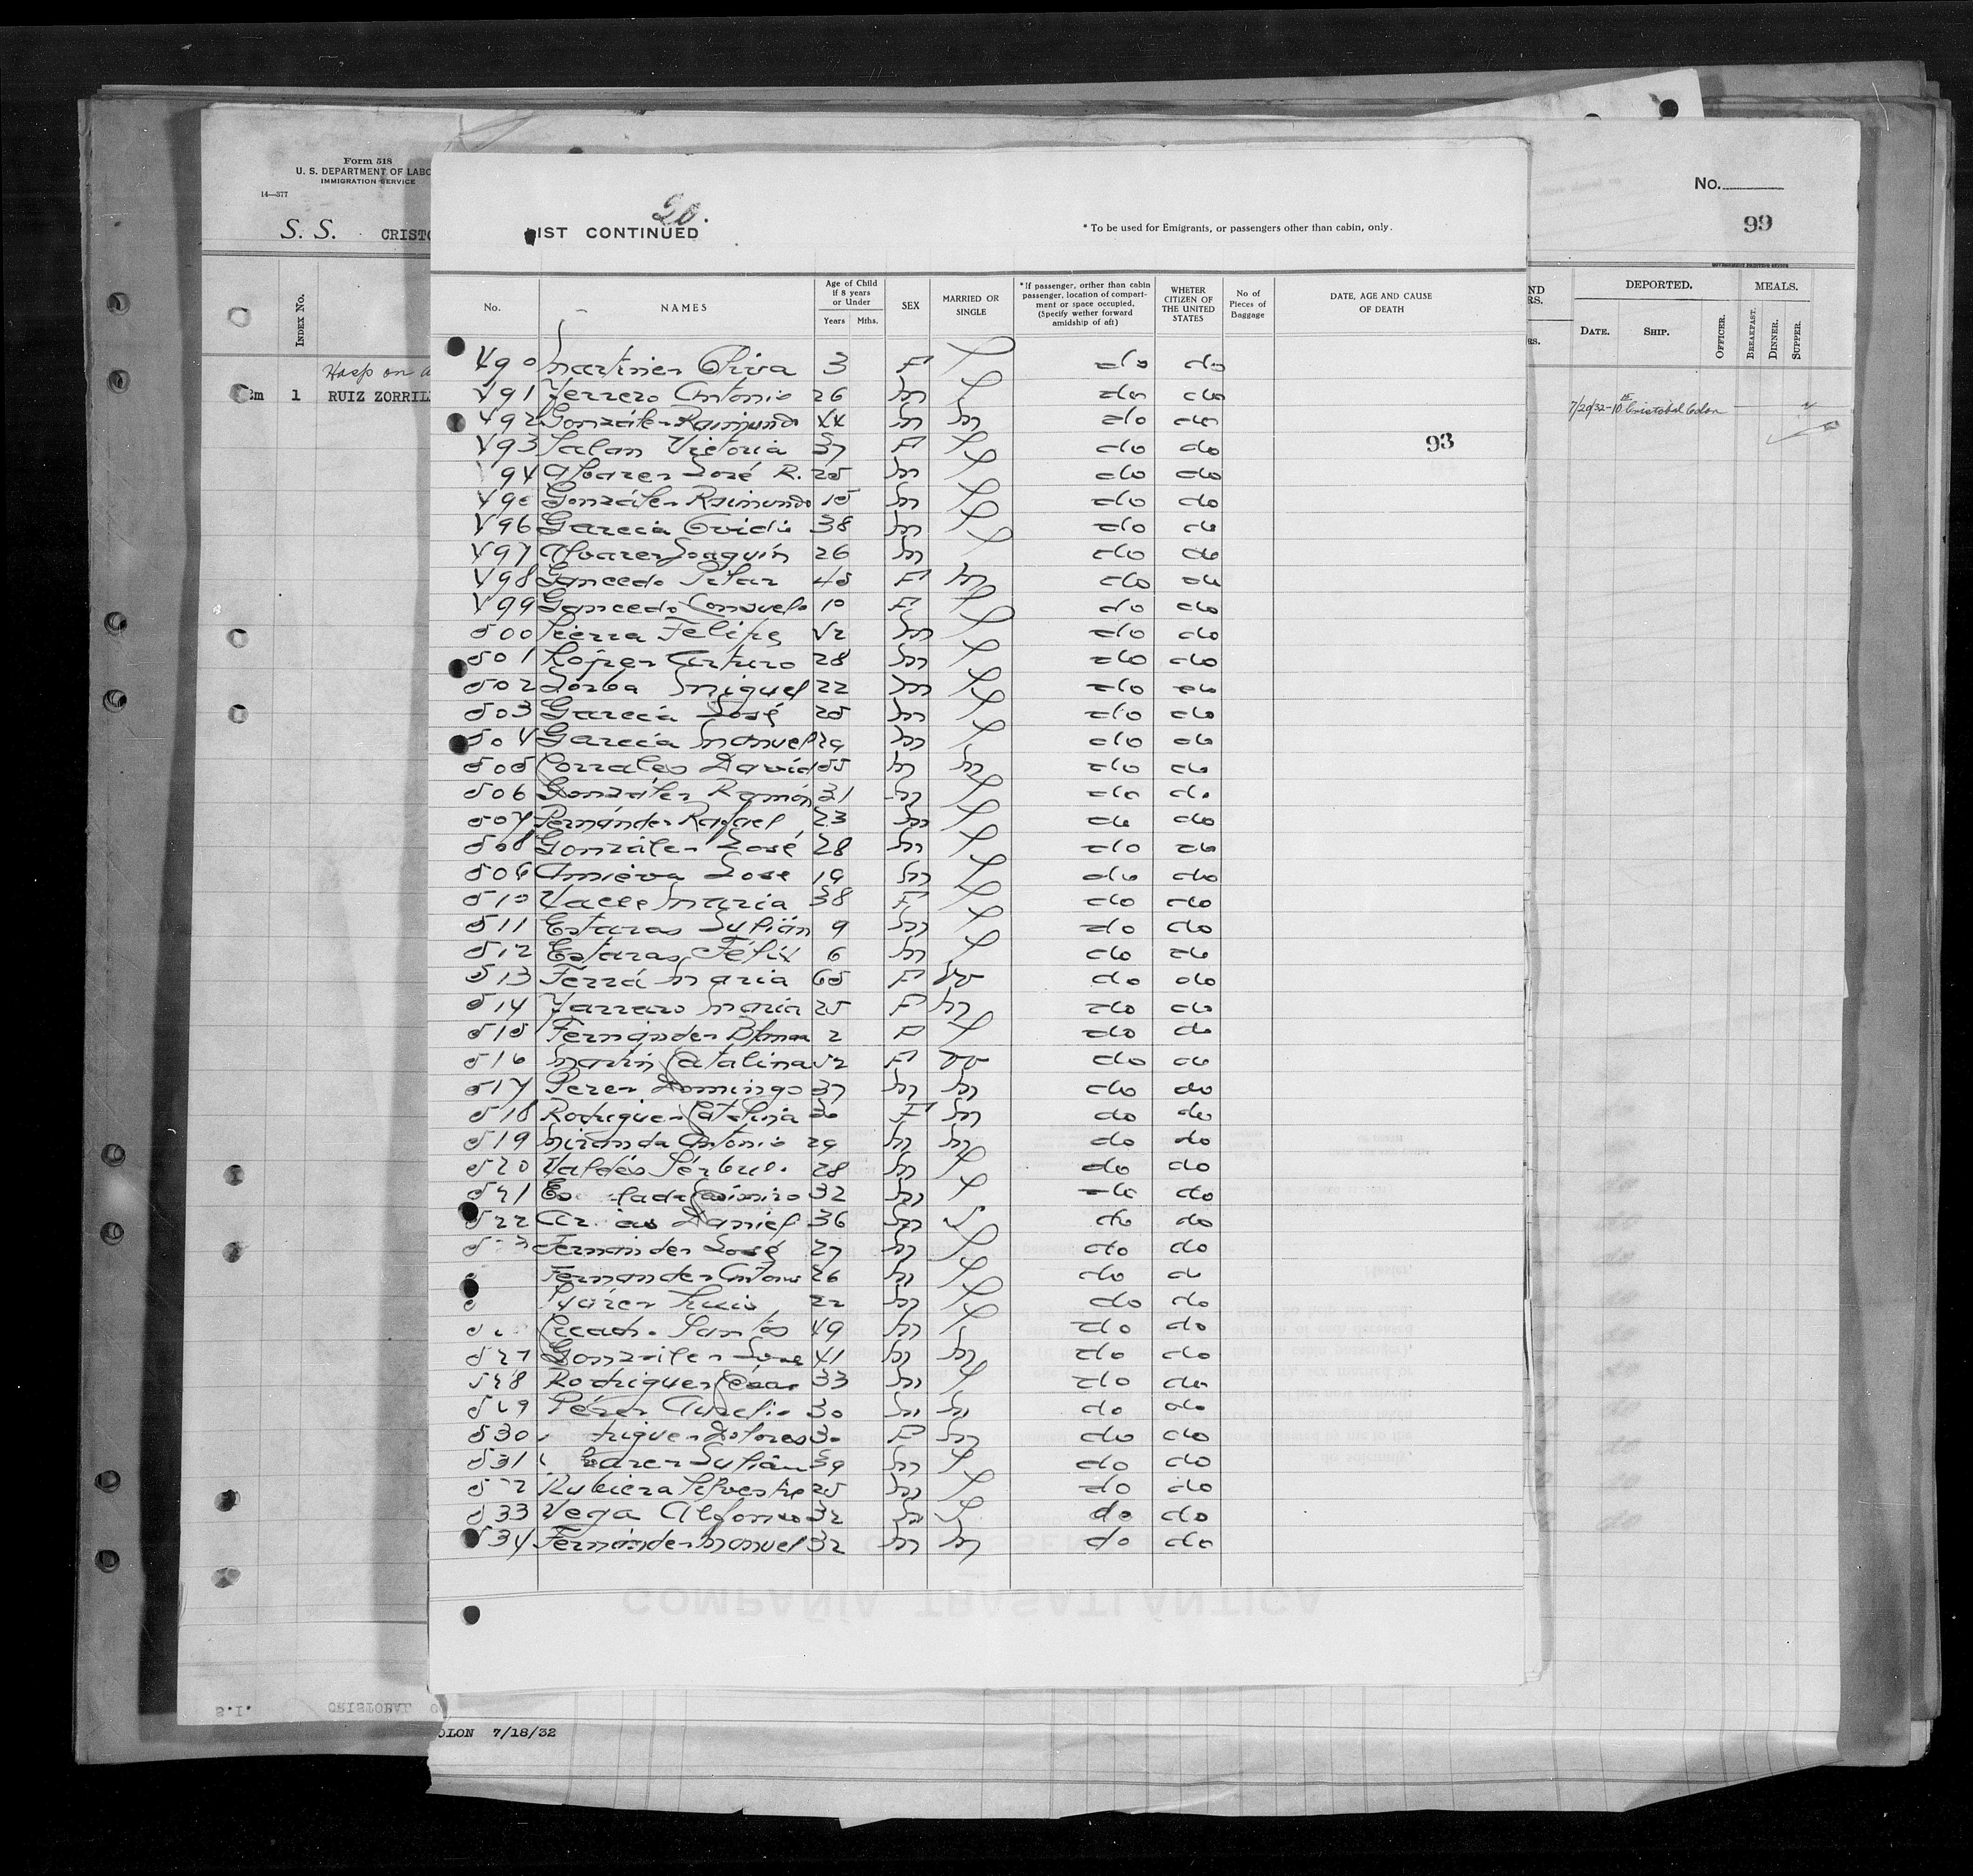 Form 518
U. S. DEPARTMENT OF LABO
IMMIGRATION SERVICE
14—577
S. S. CRISTO
INDEX No.
Hosp on a
1 RUIZ ZORRIL
20.
IST CONTINUED
* To be used for Emigrants, or passengers other than cabin, only.
No. NAMES Age of Child if 8 years or Under Years Mths. SEX MARRIED OR SINGLE *If passenger, orther than cabin passenger, location of compartment or space occupied. (Specify wether forward amidship of aft) WHETER CITIZEN OF THE UNITED STATES No of Pieces of Baggage DATE, AGE AND CAUSE OF DEATH
490 Martinez Oliva 3 F S do do
491 Ferrero Antonio 26 M S do do
492 González Raimundo 44 M M do do
493 Salan Victoria 37 F S do do
93
494 Alvarez José R. 25 M S do do
495 González Raimundo 15 M S do do
496 Garcia Ovidio 38 M S do do
497 Alvarez Joaquín 26 M S do do
498 Gancedo Pilar 45 F M do do
499 Gancedo Consuelo 10 F S do do
500 Sierra Felipe 52 M S do do
501 López Arturo 28 M S do do
502 Jorba Miguel 22 M S do do
503 García José 25 M S do do
504 García Manuel 29 M S do do
505 Corrales David 55 M M do do
506 González Ramón 31 M S do do
507 Fernández Rafael 23 M S do do
508 González José 28 M S do do
509 Amieva José 19 M S do do
510 Valle Maria 38 F S do do
511 Estaras Julián 9 M S do do
512 Estaras Félix 6 M S do do
513 Ferrá Maria 65 F W do do
514 Maria 25 F M do do
515 Fernández 2 F S do do
516 Marin Catalina 52 F W do do
517 Perez Domingo 37 M M do do
518 Rodriguez Catalina 30 F M do do
519 Miranda Antonio 29 M M do do
520 Valdés 28 M S do do
521 Casimiro 32 M S do do
522 Daniel 36 M S do do
Fernández José 27 M S do do
Fernandez Antonio 26 M S do do
Suárez Luis 22 M S do do
Santos 49 M S do do
527 González José 41 M M do do
528 Rodriguez César 33 M S do do
529 Pérez Aurelio 30 M M do do
530 driguez Dolores 30 F M do do
531 Julián 59 M S do do
Rubiera Silvestre 25 M S do do
533 Vega Alfonso 32 M S do do
534 Fernández Manuel 32 M M do do
COMPAÑÍA TRASATLANTICA
S.I. CRISTOBAL CO
OLON 7/18/32
No.
99
DEPORTED. MEALS.
DATE. SHIP. OFFICER. BREAKFAST. DINNER. SUPPER.
7/20/32-10 Cristobal Colon